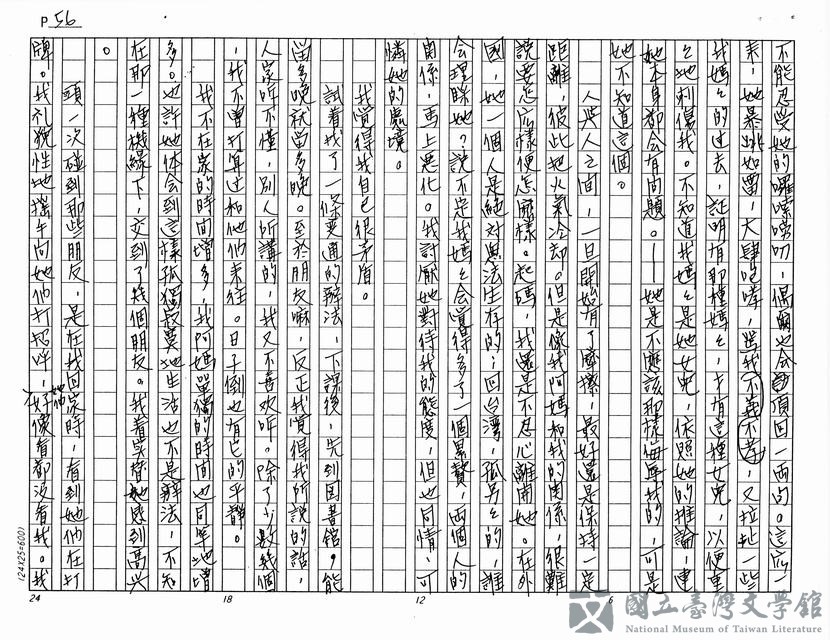 P 56
不能忍受她的囉嗦嘮叨,偶爾也會頂回一兩句。這应一
来,她暴跳如雷,大肆咆哮,罵我不義不孝,又拉扯一些
我媽々的过去,証明有那種媽々,才有這種女兒,以便重
々地刺傷我。不知道我媽々是她女兒,依照她的推論,連
她本身都会有問題。——她是不應該那樣侮辱我的,可是
她不知道這個。
人與人之间,一旦開始有了磨擦,最好還是保持一定
距離,彼此地火氣冷却。但是像我阿媽和我的関係,很難
說要怎应樣便怎麼樣。起碼,我還是不忍心離開她。在外
國,她一個人是絕对無法生存的;回台灣,孤另々的,誰
会理睬她?說不定我媽々会覚得多了一個累贅,兩個人的
関係,馬上悪化。我討厭她對待我的態度,但也同情、可
憐她的處境。
我覚得我自己很矛盾。
試着找了一條变通的辦法,下課後,先到図書館,能
留多晚就留多晚。至於朋友嘛,反正我覚得我所說的話,
人家听不懂,別人所講的,我又不喜欢听。除了少數幾個
,我不曽打算过和他们来往。日子倒也有它的平靜。
我不在家的時间增多,我阿媽單獨的時间也同等地增
多。也許她体会到這樣孤獨寂寞地生活也不是辦法,不知
在那一種機緣下,交到了幾個朋友。我着実替她感到高兴
。
頭一次碰到那些朋友,是在我回家時,看到她他们在打
牌。我礼貌性地揮手向她们打招呼,她们好像看都没看我。我
24
18
12
6
(24X25=600)
國立臺灣文學館
National Museum of Taiwan Literature